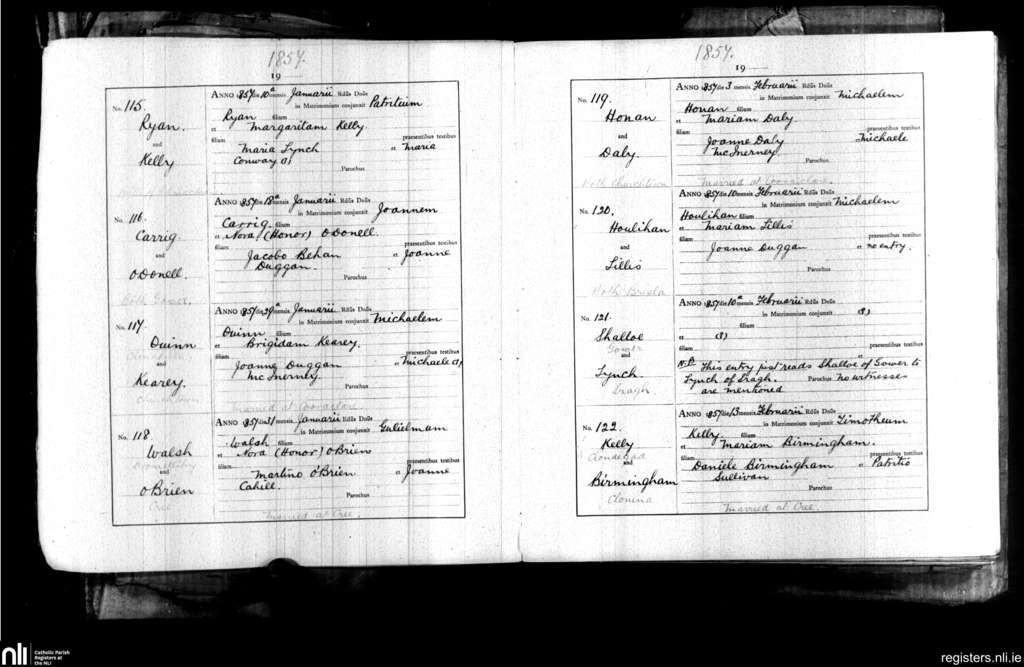 1857.
19
No. 115.
Ryan.
and
Kelly
ANNO 1857 die 10ª mensis Januarii Rdus Dnus
in Matrimonium conjunxit Patritium
Ryan filium
et Margaritam Kelly.
filiam praesentibus testibus
Maria Lynch et Maria
Conway
Parochus
No. 116.
Carrig.
and
O'Donell.
Both Gower
ANNO 1857 die 18ª mensis Januarii Rdus Dnus
in Matrimonium conjunxit Joannem
Carrig. filium
et Nora (Honor) O'Donell.
filiam praesentibus testibus
Jacobo Behan et Joanne
Duggan.
Parochus
No. 117
Quinn
and
Kearey.
ANNO 1857 die 29ª mensis Januarii Rdus Dnus
in Matrimonium conjunxit Michaelem
Quinn filium
et Brigidam Kearey.
filiam praesentibus testibus
Joanne Duggan et Michaele
McInerney
Parochus
Married at
No. 118.
Walsh
and
O'Brien
Cree
ANNO 1857 die 31 mensis Januarii Rdus Dnus
in Matrimonium conjunxit Gulielmam
Walsh filium
et Nora (Honor) O'Brien
filiam praesentibus testibus
Martino O'Brien et Joanne
Cahill.
Parochus
Married at Cree.
1857.
19
No. 119.
Honan
and
Daly.
ANNO 1857 die 3 mensis Februarii Rdus Dnus
in Matrimonium conjunxit Michaelem
Honan filium
et Mariam Daly.
filiam praesentibus testibus
Joanne Daly et Michaele
McInerney.
Parochus
Married at
No. 120.
Houlihan
and
Lillis
ANNO 1857 die 10 mensis Februarii Rdus Dnus
in Matrimonium conjunxit Michaelem
Houlihan filium
et Mariam Lillis
filiam praesentibus testibus
Joanne Duggan et no entry.
Parochus
No. 121.
Shalloe
Gower
and
Lynch.
Tragh
ANNO 1857 die 10ª mensis Februarii Rdus Dnus
in Matrimonium conjunxit (?)
filium
et (?)
filiam praesentibus testibus
N.B. This entry just reads Shalloe of Gower to
Lynch of Tragh. Parochus No witnesses
are mentioned
No. 122.
Kelly
and
Birmingham
Clonina
ANNO 1857 die 13 mensis Februarii Rdus Dnus
in Matrimonium conjunxit Timotheum
Kelly. filium
et Mariam Birmingham.
filiam praesentibus testibus
Daniele Birmingham et Patritio
Sullivan
Parochus
Married at Cree.
nli
Catholic Parish
Registers at
the NLI
registers.nli.ie